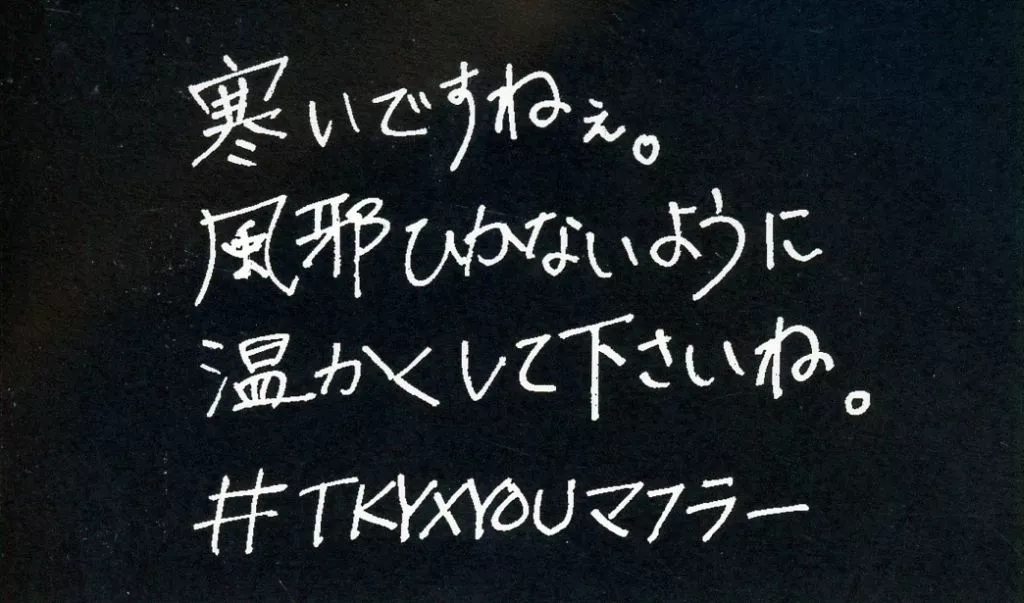 寒いですねぇ。
風邪ひかないように
温かくして下さいね。
#TKYXYOUマフラー